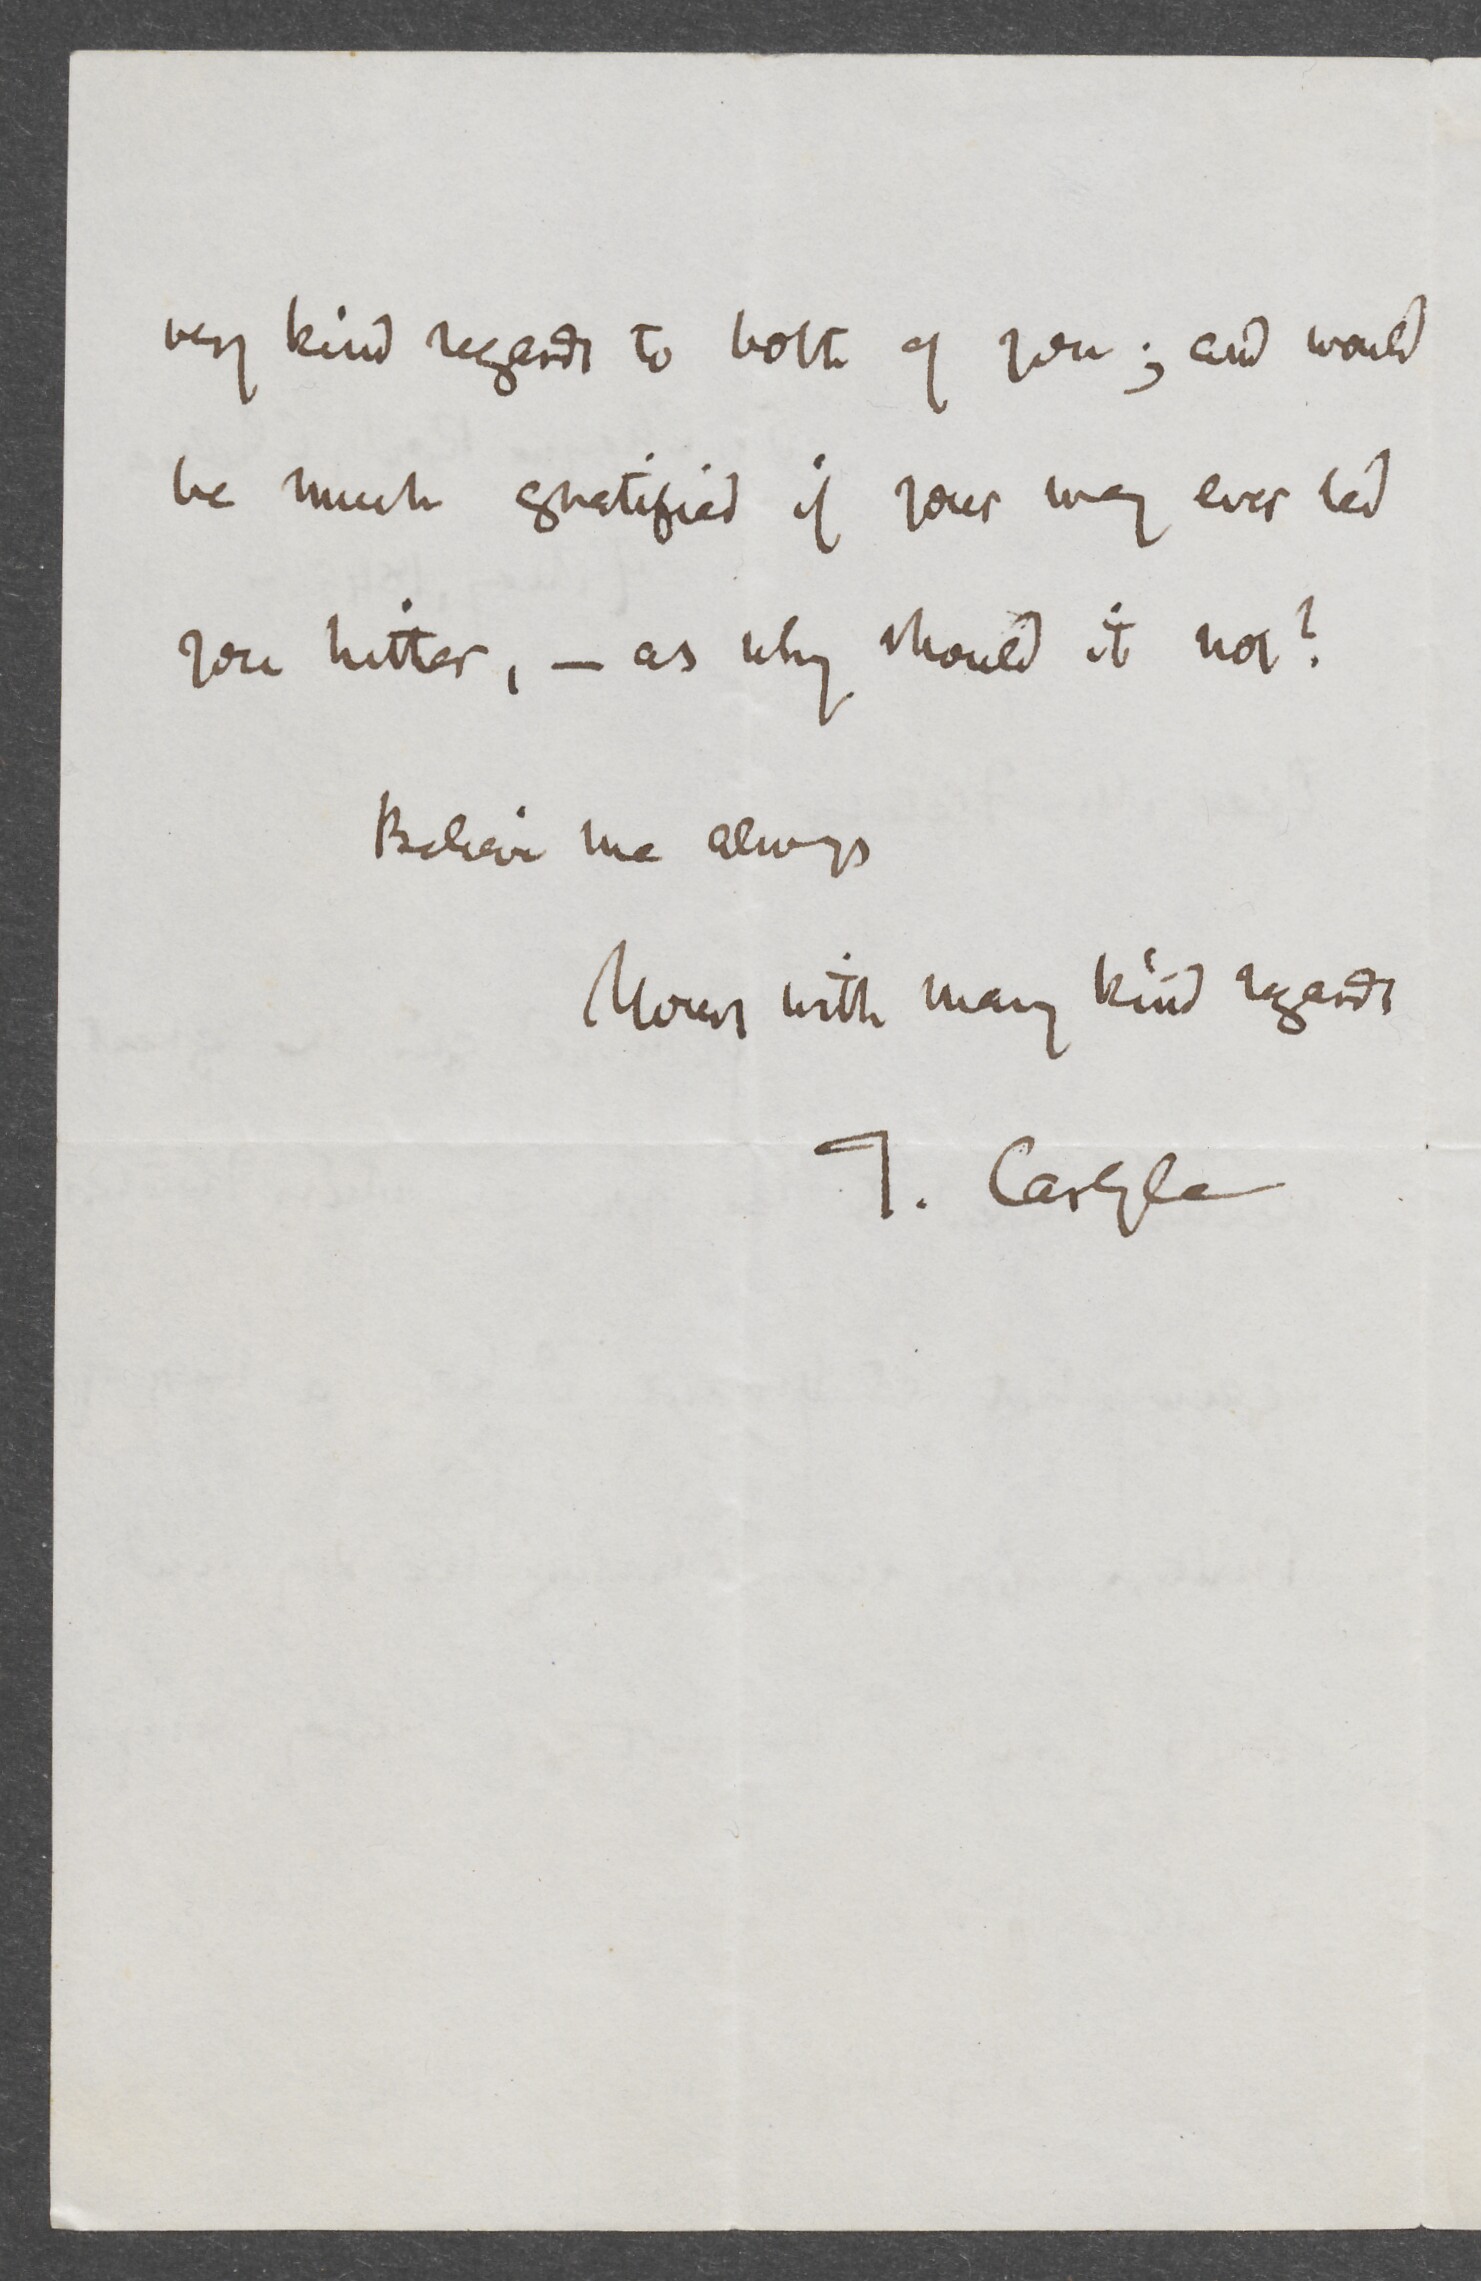 very kind regards to both of you; and would
be much gratified if your way ever led
you hither, — as why should it not?
Believe me always
Yours with many kind regards
T. Carlyle